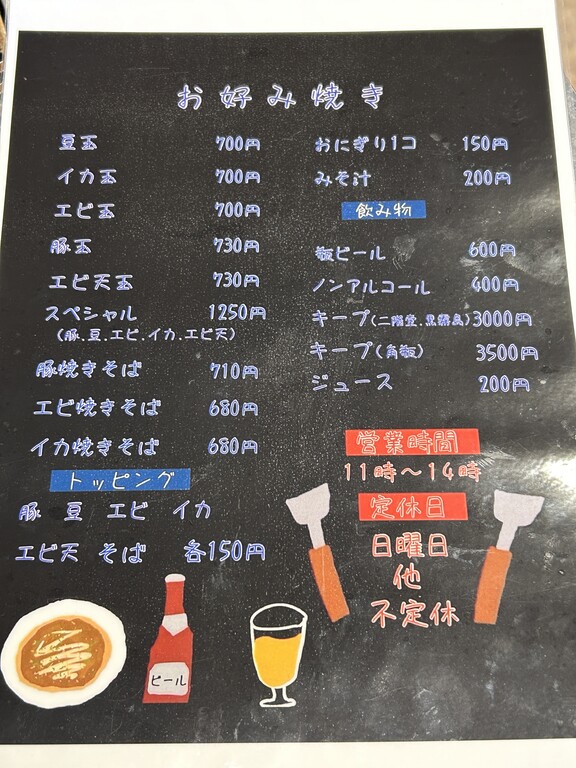 お好み焼き
豆玉 700円
イカ玉 700円
エビ玉 700円
豚玉 730円
エビ天玉 730円
スペシャル 1250円
(豚.豆.エビ.イカ.エビ天)
豚焼きそば 710円
エビ焼きそば 680円
イカ焼きそば 680円
トッピング
豚 豆 エビ イカ
エビ天 そば 各150円
おにぎり1コ 150円
みそ汁 200円
飲み物
瓶ビール 600円
ノンアルコール 400円
キープ(二階堂.黒霧島) 3000円
キープ(角瓶) 3500円
ジュース 200円
営業時間
11時～14時
定休日
日曜日
他
不定休
ビール